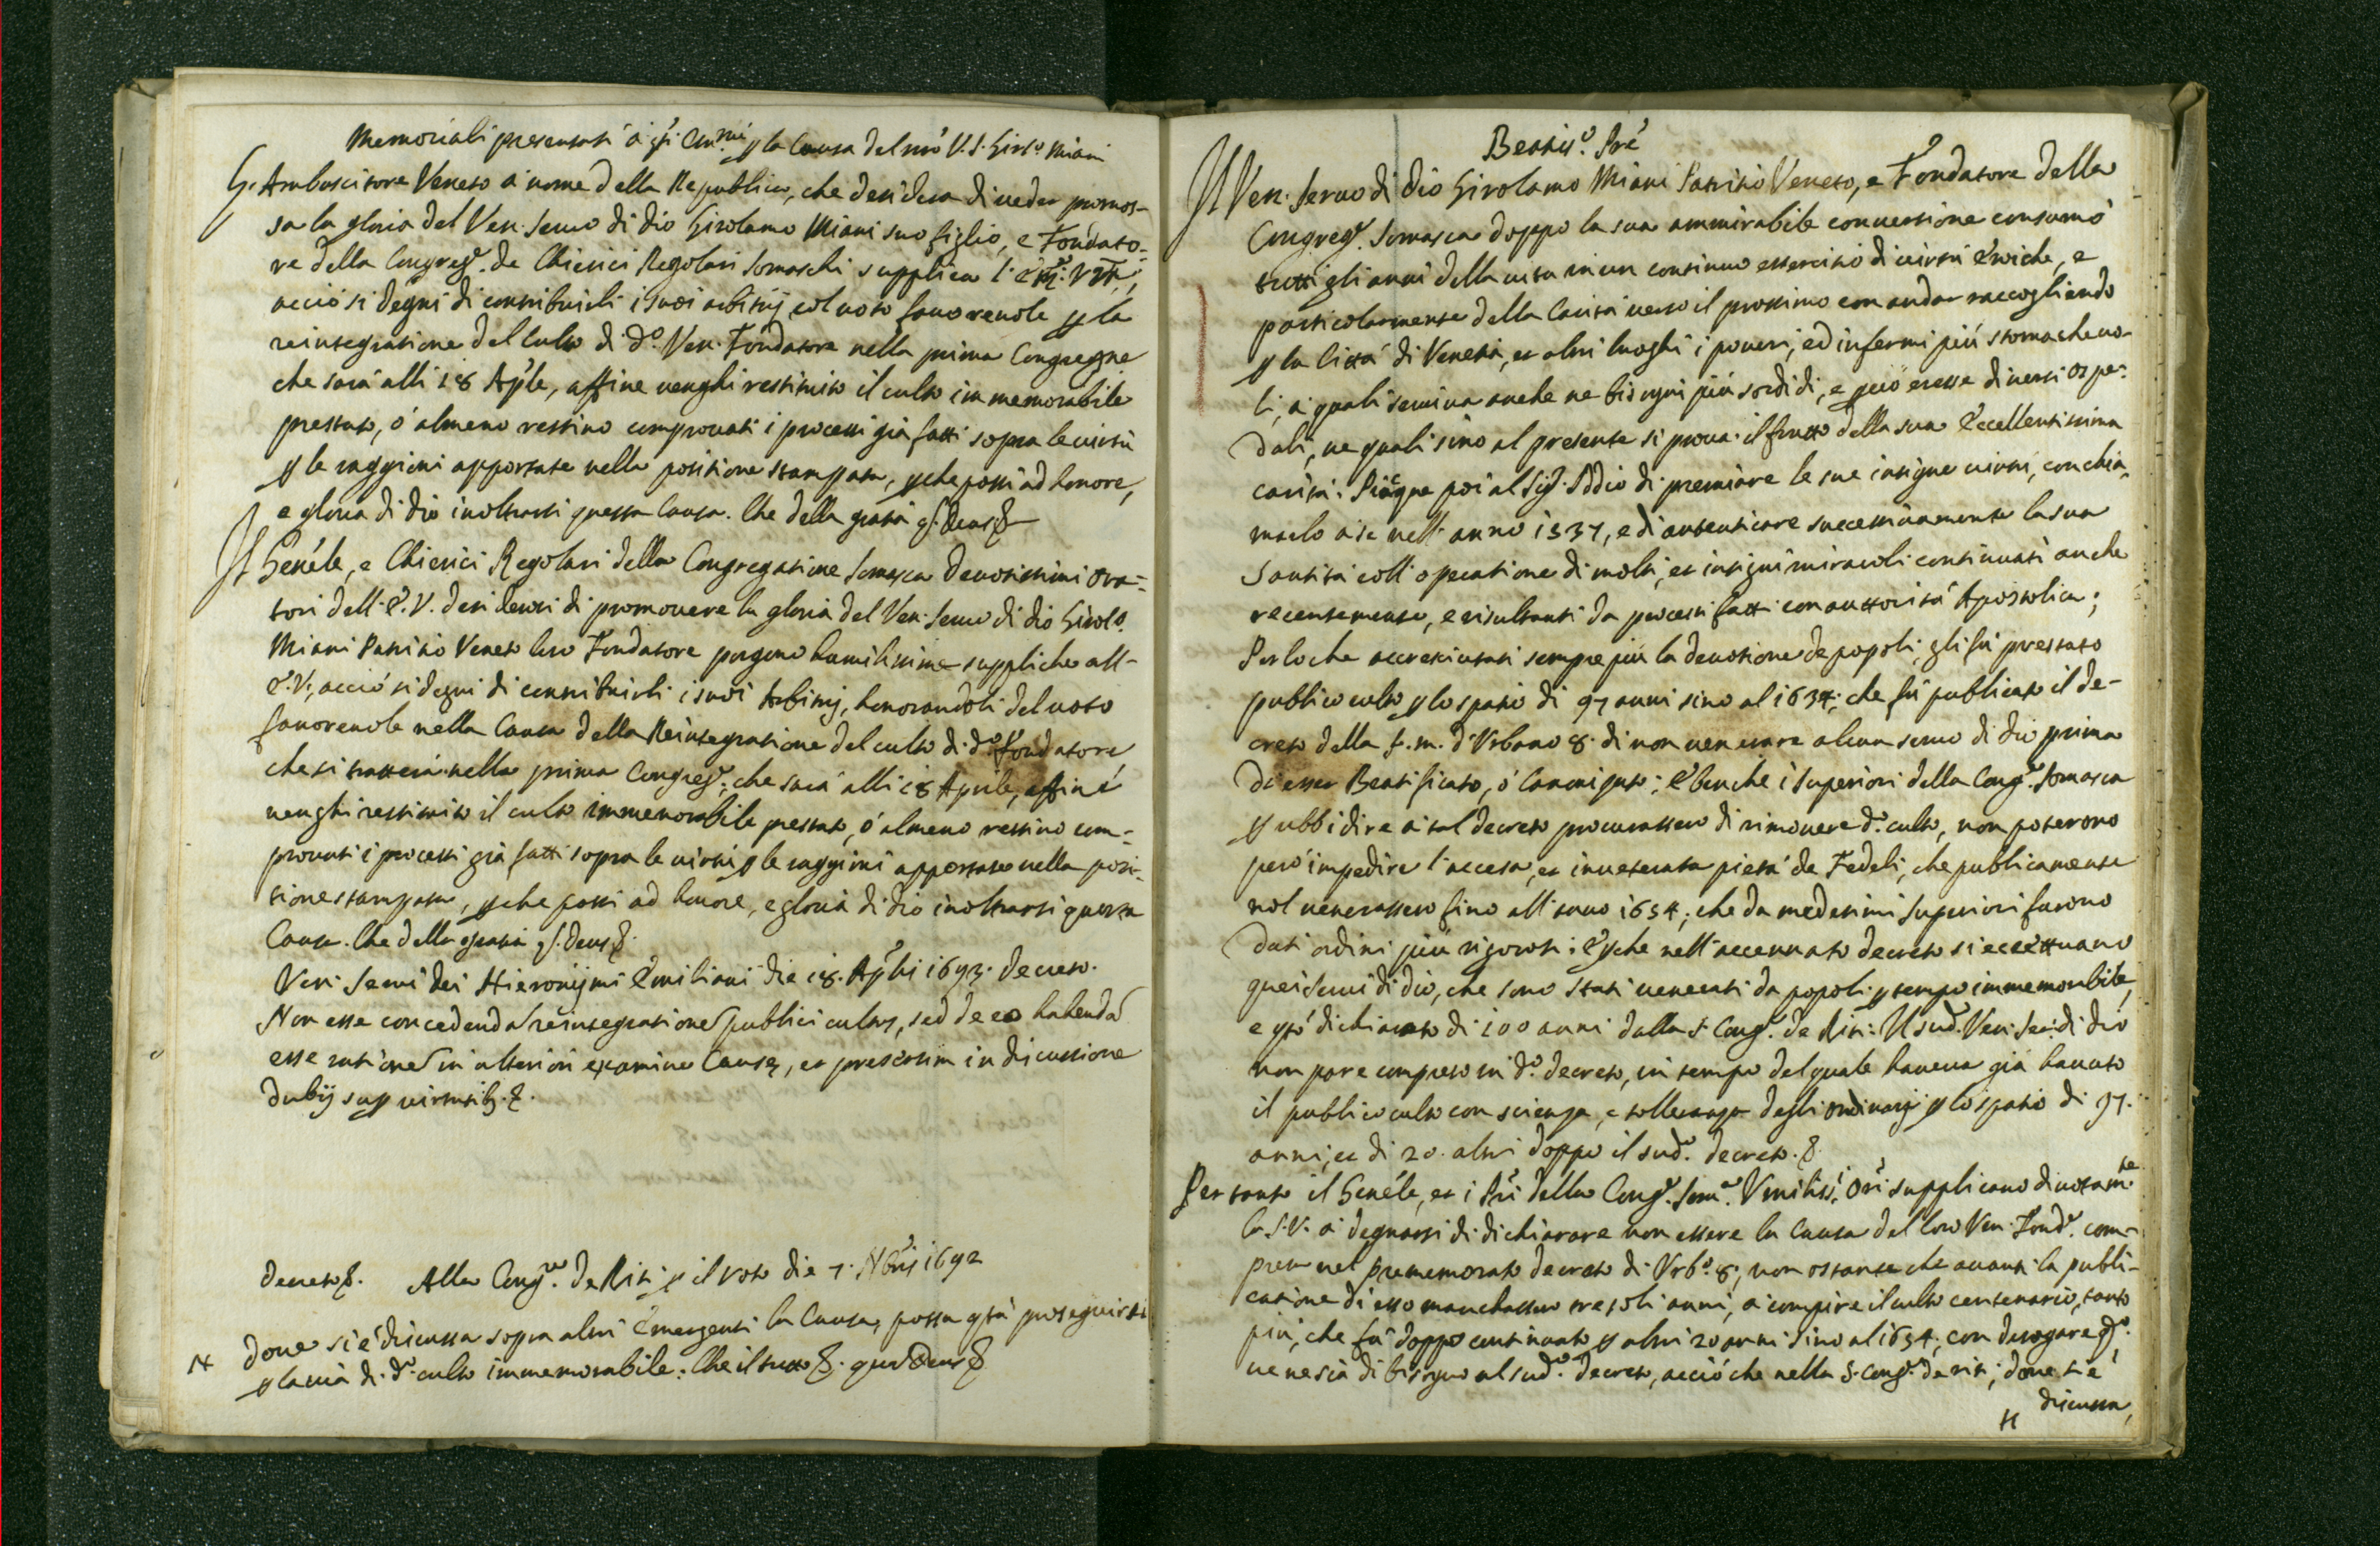 Memoriali presentati à gl'i Em.mi p la Causa del nrõ V. S. Girol.o Miani
L'Ambascitore Veneto à nome della Republica, che desidera di veder promos-
sa la gloria del Ven. Servo di Dio Girolamo Miani suo figlio, e Fondato-
re della Congreg.e de Chierici Regolari Somaschi supplica l'Em. Vrã,
acciò si degni di contribuirli i suoi arbitrij col voto favorevole p la
reintegratione del culto di d.o Ven. Fondatore nella prima Congregne
che sarà alli 18 Aple, affine venghi restituito il culto immemorabile
prestato, ò almeno restino comprovati i processi già fatti sopra le virtù
p le raggioni apportate nella positione stampata, pche possi ad honore,
e gloria di Dio inoltrarsi questa Causa. Che della gratia q. Deus &
Il Genẽle, e Chierici Regolari della Congregatione Somasca devotissimi Ora-
tori dell'E. V. desiderosi di promovere la gloria del Ven. Servo di Dio Girol.o
Miani Patritio Veneto loro Fondatore porgono humilissime suppliche all'
E. V., acciò si degni di contribuirli i suoi Arbitrij, honorandoli del voto
favorevole nella Causa della Reintegratione del culto di d.o Fondatore,
che si tratterà nella prima Congreg.e, che sarà alli 18 Aprile, affine
venghi restituito il culto immemorabile prestato, ò almeno restino com-
provati i processi già fatti sopra le virtù p le raggioni apportate nella posi-
tione stampata, pche possi ad honore, e gloria di Dio inoltrarsi questa
Causa. Che della gratia q. Deus &.
Ven. Servi Dei Hieronijmi Emiliani die 18. Aplis 1693. decreto.
Non esse concedendã reintegrationẽ publici cultus, sed de eo habendã
esse rationẽ in ulteriori examine Causę, et presertim in discussione
dubij sup virtutib. &.
decreto &. Alla Cong.ne de Riti p il voto die 7. Nbris 1692
# dove si è discussa sopra altri emergenti la Causa, possa q.ta proseguirsi
p la via di d.o culto immemorabile. Che il tutto &. quã Deus &
Beatis.o Prẽ
Il Ven. Servo di Dio Girolamo Miani Patritio Veneto, e Fondatore della
Congreg.e Somasca doppo la sua ammirabile conversione consumò
tutti gli anni della vita in un continuo essercitio di virtù eroiche, e
particolarmente della Carità verso il prossimo con andar raccogliendo
p la Città di Venetia, et altri luoghi i poveri, ed infermi più stomachevo-
li, a' quali serviva anche ne bisogni più sordidi, e pciò eresse diversi Ospe-
dali, ne quali sino al presente si prova il frutto della sua eccellentissima
carità. Piacque poi al Sig.r Iddio di premiare le sue insigne virtù, con chia-
marlo a se nell' anno 1537, e di autenticare successivamente la sua
Santità coll' operatione di molti, et insigni miracoli continuati anche
recentemente, e risultanti da processi fatti con auttorità Apostolica;
Per lo che accresciutasi sempre più la devotione de popoli, gli fù prestato
publico culto p lo spatio di 97 anni sino al 1634, che fù publicato il de-
creto della f. m. d'Urbano 8. di non venerare alcun servo di Dio prima
di esser Beatificato, ò Canonizato; E benche i Superiori della Cong.e Somasca
p ubbidire à tal decreto procurassero di rimovere d.o culto, non poterono
però impedire l'accesa, et inveterata pietà de Fedeli, che publicamente
nol venerassero fino all'anno 1654, che da medesimi Superiori furono
dati ordini più rigorosi; E pche nell'accennato decreto si eccettuano
quei Servi di Dio, che sono stati venerati da popoli p tempo immemorabile,
e q.to dichiarato di 100 anni dalla S. Cong.e de Riti: Il sud.o Ven. Ser. di Dio
non pare compreso in d.o decreto, in tempo del quale haveva già havuto
il publico culto con scienza, e tolleranza degli Ordinarij p lo spatio di 97.
anni, et di 20. altri doppo il sud.o decreto. &.
Per tanto il Genẽle, et i Prĩ della Cong.e Som.a Umiliss.i Orĩ supplicano divotam.te
la S. V. à degnarsi di dichiarare non essere la Causa del loro Ven. Fond.e com-
presa nel prememorato decreto di Urb.o 8, non ostante che avanti la publi-
catione di esso mancassero tre soli anni, a compire il culto centenario, tanto
più, che fù doppo continuato p altri 20 anni sino al 1654, con derogare q.do
ve ne sia di bisogno al sud.o decreto, acciò che nella S. Cong.e de riti, dove si è
# discussa,